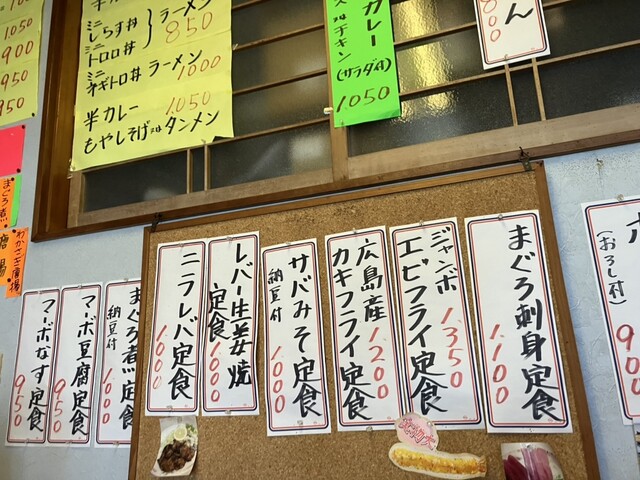 ミニ しらす丼
ミニ トロロ丼
ラーメン
850
ミニ ネギトロ丼 ラーメン
1000
半カレー 1050
もやしそば又はタンメン
カレー
(サラダ付)
1050
ん
800
900
950
950
まぐろ刺身定食
1,100
ジャンボ
エビフライ定食
1350
広島産
カキフライ定食
1200
サバみそ定食
納豆付
1000
レバー生姜焼
定食
1000
ニラレバ定食
1000
まぐろ煮定食
納豆付
1000
マーボ豆腐定食
950
マーボなす定食
950
(おろし付)
まぐろ煮